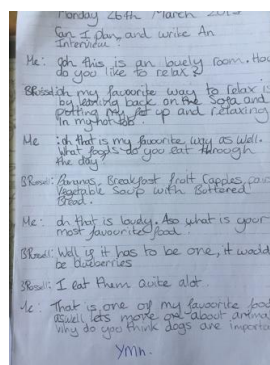 Monday 26th March 201
Can I plan and write An
Interview.
Me: Ooh this is an lovely room. How
do you like to relax?
B.Russell: oh my favourite way to relax is
by leaning back on the Sofa and
putting my feet up and relaxing
In my hot tub.
Me: oh that is my favourite way as well.
What foods do you eat through
the day.
B.Russell: Bananas, Breakfast fruit
Vegetable Soup with Buttered
Bread.
Me: oh that is lovely. Also what is your
most favourite food.
B.Russell: Well if it has to be one, it would
be blueberries
B.Russell: I eat them quite alot.
Me: That is one of my favourite food
aswell lets move one about animal
why do you think dogs are importan